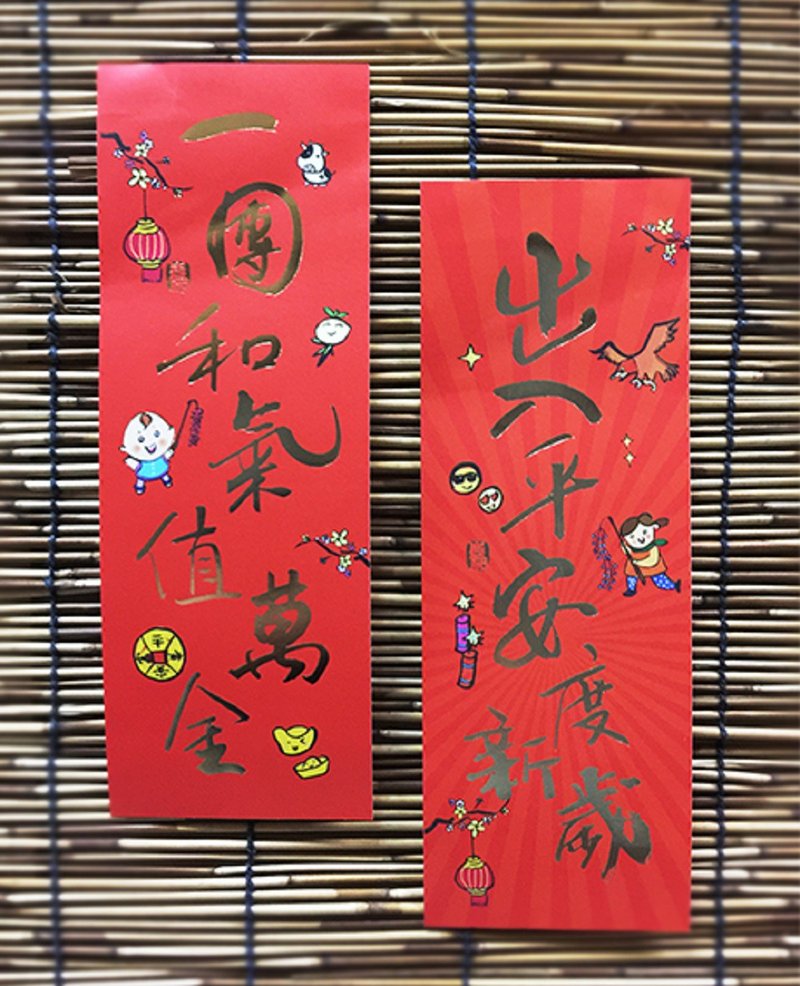 一團和氣值萬金
出入平安度新歲